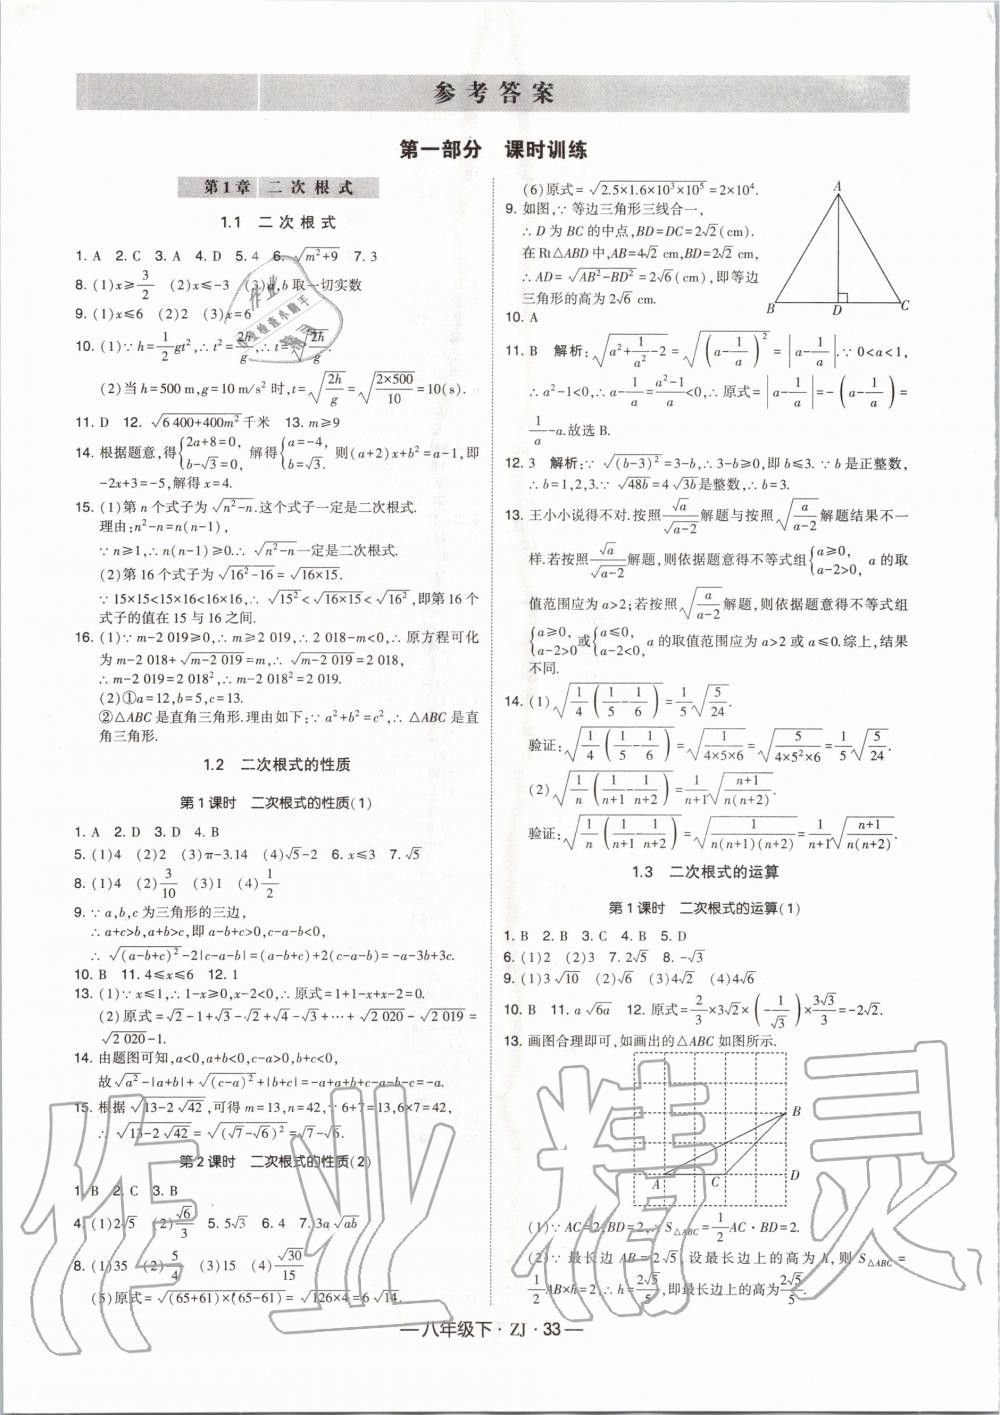 参考答案
第一部分 课时训练
第1章 二次根式
1.1 二次根式
1. A 2. C 3. A 4. D 5. 4 6. √(m²+9) 7. 3
8. (1)x≥3/2 (2)x≤-3 (3)a,b取一切实数
9. (1)x≤6 (2)2 (3)x=6
10. (1)∵h=1/2gt²,∴t²=2h/g,∴t=√(2h/g).
(2)当h=500 m,g=10 m/s²时,t=√(2h/g)=√(2×500/10)=10(s).
11. D 12. √(6 400+400m²)千米 13. m≥9
14. 根据题意,得{2a+8=0, b-√3=0, 解得{a=-4, b=√3. 则(a+2)x+b²=a-1,即
-2x+3=-5,解得x=4.
15. (1)第n个式子为√(n²-n).这个式子一定是二次根式.
理由:n²-n=n(n-1),
∵n≥1,∴n(n-1)≥0.∴√(n²-n)一定是二次根式.
(2)第16个式子为√(16²-16)=√(16×15).
∵15×15<15×16<16×16,∴√15²<√(16×15)<√16²,即第16个
式子的值在15与16之间.
16. (1)∵m-2 019≥0,∴m≥2 019,∴2 018-m<0,∴原方程可化
为m-2 018+√(m-2 019)=m,∴√(m-2 019)=2 018,
∴m-2 019=2 018²,∴m-2 018²=2 019.
(2)①a=12,b=5,c=13.
②△ABC是直角三角形.理由如下:∵a²+b²=c²,∴△ABC是直
角三角形.
1.2 二次根式的性质
第1课时 二次根式的性质(1)
1. A 2. D 3. D 4. B
5. (1)4 (2)2 (3)π-3.14 (4)√5-2 6. x≤3 7. √5
8. (1)4 (2)3/10 (3)1 (4)1/2
9. ∵a,b,c为三角形的三边,
∴a+c>b,a+b>c,即a-b+c>0,c-a-b<0,
∴√(a-b+c)²-2|c-a-b|=(a-b+c)+2(c-a-b)=-a-3b+3c.
10. B 11. 4≤x≤6 12. 1
13. (1)∵x≤1,∴1-x≥0,x-2<0,∴原式=1+1-x+x-2=0.
(2)原式=√2-1+√3-√2+√4-√3+…+√2 020-√2 019=
√2 020-1.
14. 由题图可知,a<0,a+b<0,c-a>0,b+c<0,
故√a²-|a+b|+√(c-a)²+|b+c|=-a+a+b+c-a-b-c=-a.
15. 根据√(13-2√42),可得m=13,n=42,∵6+7=13,6×7=42,
∴√(13-2√42)=√(√7-√6)²=√7-√6.
第2课时 二次根式的性质(2)
1. B 2. C 3. B
4. (1)2√5 (2)√6/3 5. 5√3 6. 4 7. 3a√ab
8. (1)35 (2)5/4 (3)15 (4)√30/15
(5)原式=√((65+61)×(65-61))=√(126×4)=6√14.
(6)原式=√(2.5×1.6×10³×10⁵)=2×10⁴.
9. 如图,∵等边三角形三线合一,
∴D为BC的中点,BD=DC=2√2(cm).
在Rt△ABD中,AB=4√2 cm,BD=2√2 cm,
∴AD=√(AB²-BD²)=2√6(cm),即等边
三角形的高为2√6 cm.
A
B
D
C
10. A
11. B 解析:√(a²+1/a²-2)=√(a-1/a)²=|a-1/a|.∵0<a<1,
∴a²-1<0,∴a-1/a=(a²-1)/a<0,∴原式=|a-1/a|=-(a-1/a)=
1/a-a.故选B.
12. 3 解析:∵√(b-3)²=3-b,∴3-b≥0,即b≤3.∵b是正整数,
∴b=1,2,3.∵√48b=4√3b是整数,∴b=3.
13. 王小小说得不对.按照√a/√(a-2)解题与按照√(a/(a-2))解题结果不一
样.若按照√a/√(a-2)解题,则依据题意得不等式组{a≥0, a-2>0, a的取
值范围应为a>2;若按照√(a/(a-2))解题,则依据题意得不等式组
{a≥0, a-2>0或{a≤0, a-2<0, a的取值范围应为a>2或a≤0.综上,结果
不同.
14. (1)√(1/4(1/5-1/6))=1/5√(5/24).
验证:√(1/4(1/5-1/6))=√(1/(4×5×6))=√(5/(4×5²×6))=1/5√(5/24).
(2)√(1/n(1/(n+1)-1/(n+2)))=1/(n+1)√((n+1)/(n(n+2))).
验证:√(1/n(1/(n+1)-1/(n+2)))=√(1/(n(n+1)(n+2)))=1/(n+1)√((n+1)/(n(n+2))).
1.3 二次根式的运算
第1课时 二次根式的运算(1)
1. B 2. B 3. C 4. B 5. D
6. (1)2 (2)3 7. 2√5 8. -√3
9. (1)3√10 (2)√6 (3)4√2 (4)4√6
10. B 11. a√6a 12. 原式=2/3×3√2×(-1/√3)×3√3/3=-2√2.
13. 画图合理即可,如画出的△ABC如图所示.
B
A
C
D
(1)∵AC=2,BD=2,∴S△ABC=1/2AC·BD=2.
(2)∵最长边AB=2√5,设最长边上的高为h,则S△ABC=
1/2AB×h=2,∴h=2√5/5,即最长边上的高为2√5/5.
八年级下·ZJ·33
作业精灵